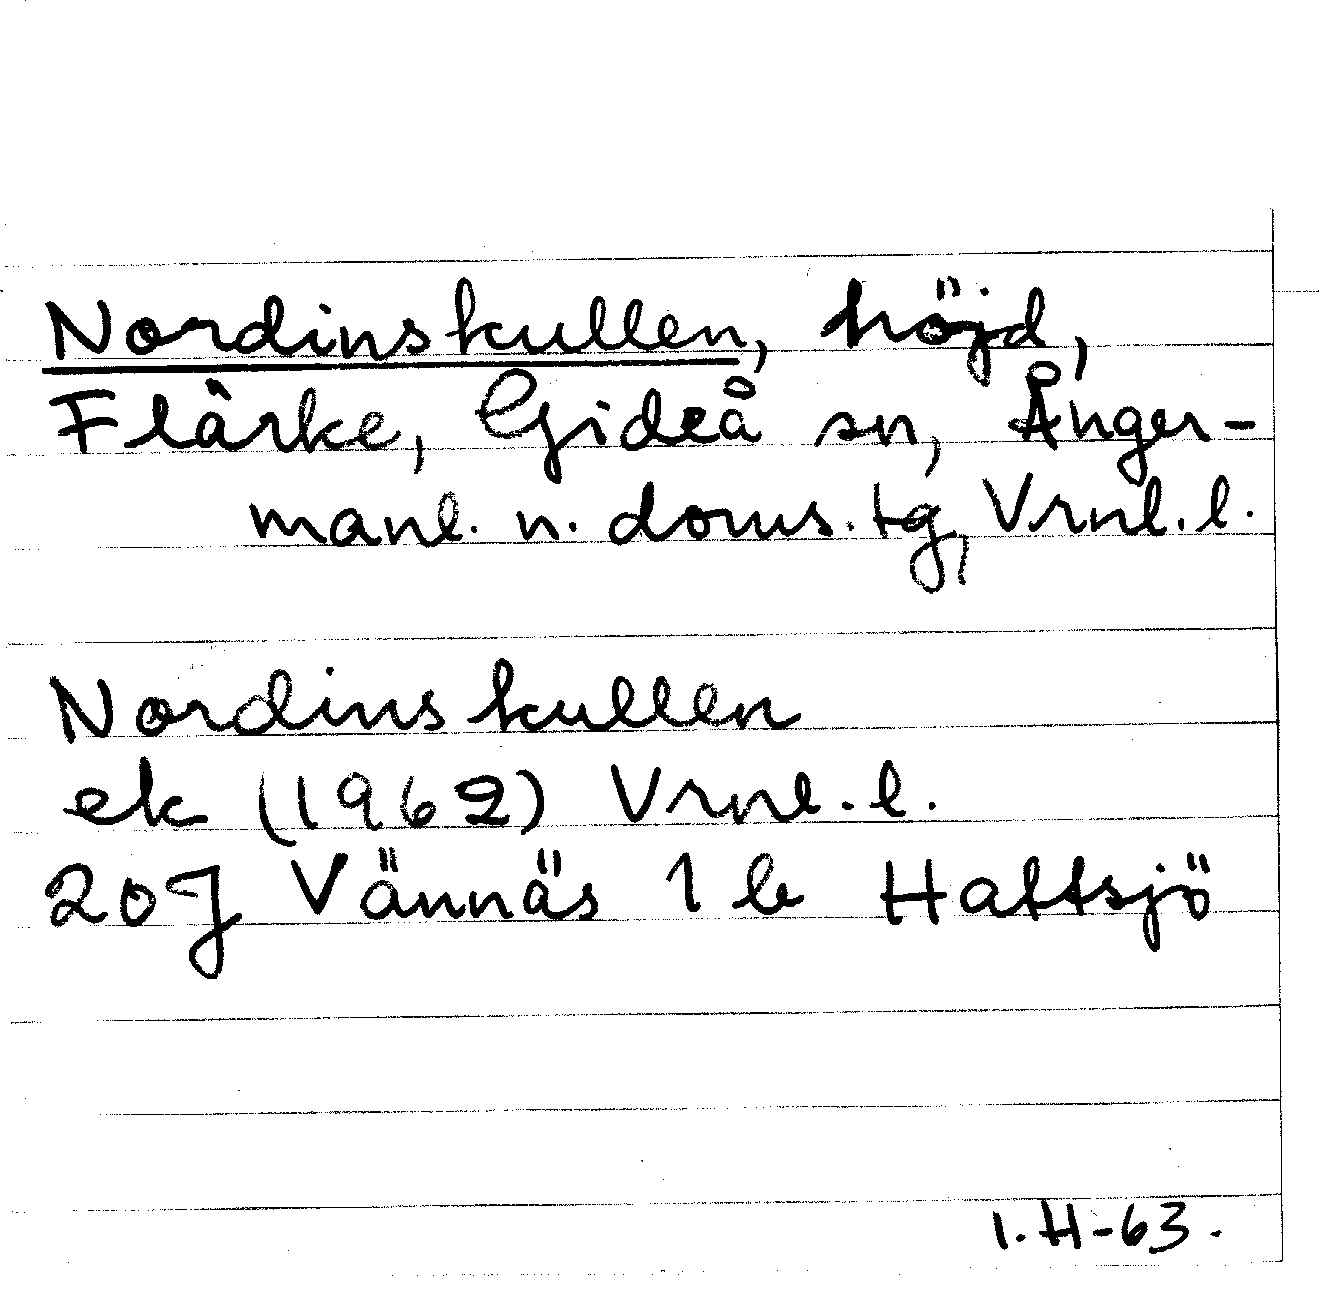 Nordinskullen, höjd,
Flärke, Gideå sn, Ånger-
manl. n. doms. tg, Vrnl. l.
Nordinskullen
ek (1962) Vrnl. l.
20J Vännäs 1 b Hattsjö
I. H-63.